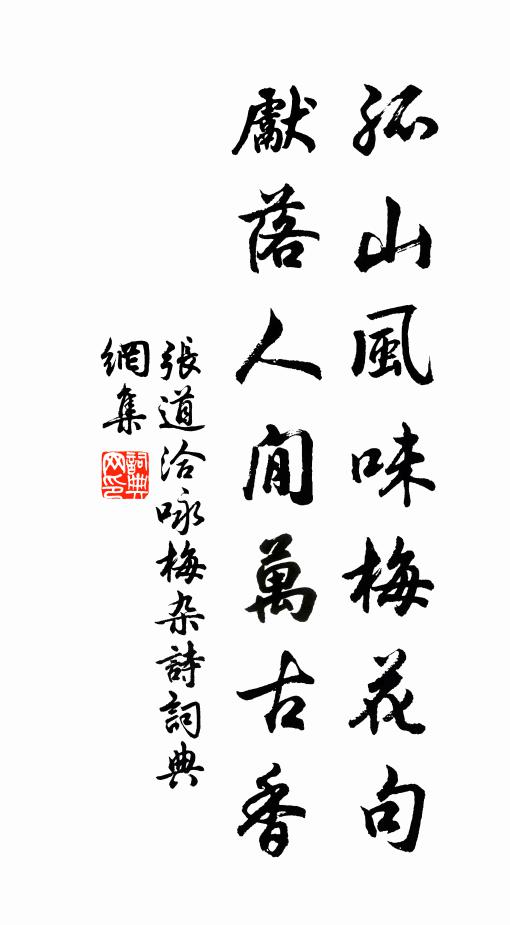 孤山風味梅花句
獻落人間萬古香
張道洽咏梅杂詩詞典
網集
詞典网印